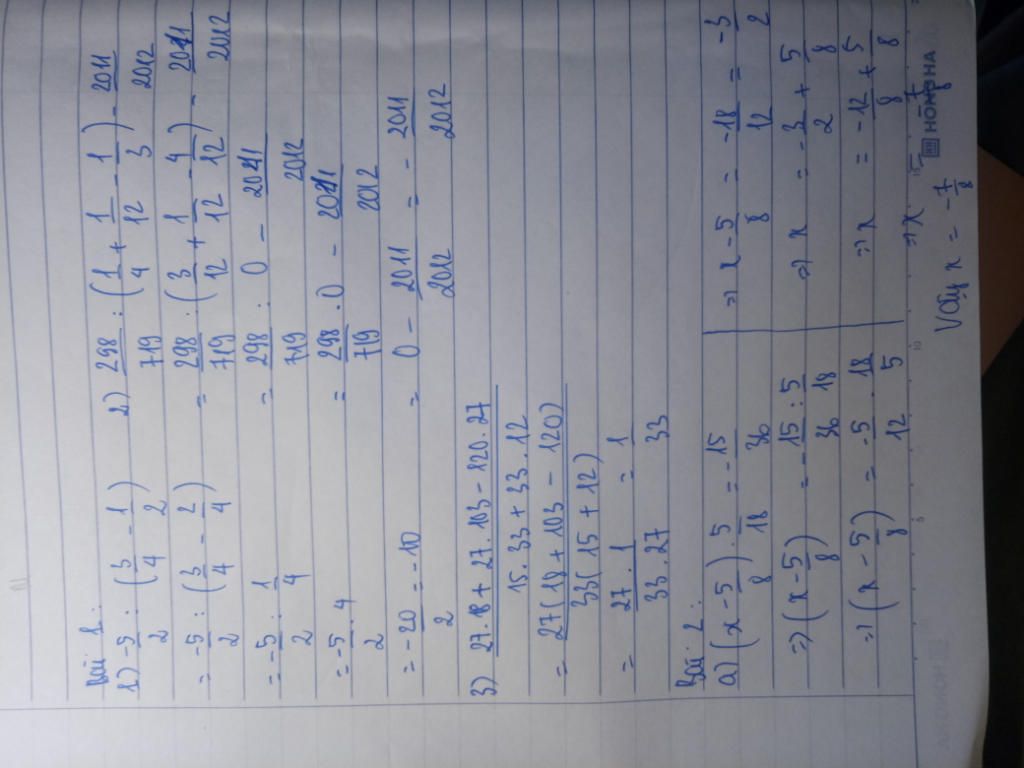 Bài 1:
1) -5/2 : (3/4 - 1/2)
= -5/2 : (3/4 - 2/4)
= -5/2 : 1/4
= -5/2 . 4
= -20/2 = -10
2) 298/719 : (1/4 + 1/12 - 1/3) - 2011/2012
= 298/719 : (3/12 + 1/12 - 4/12) - 2011/2012
= 298/719 : 0 - 2011/2012
= 298/719 . 0 - 2011/2012
= 0 - 2011/2012 = - 2011/2012
3) 27.18 + 27.103 - 120.27
15.33 + 33.12
= 27(18 + 103 - 120)
33(15 + 12)
= 27.1/33.27 = 1/33
Bài 2:
a) (x - 5/8) 5/18 = -15/36
=> (x - 5/8) = -15/36 : 5/18
=> (x - 5/8) = -5/12 . 18/5
=> x - 5/8 = -18/12 = -3/2
=> x = -3/2 + 5/8
=> x = -12/8 + 5/8
=> x = -7/8
Vậy x = -7/8